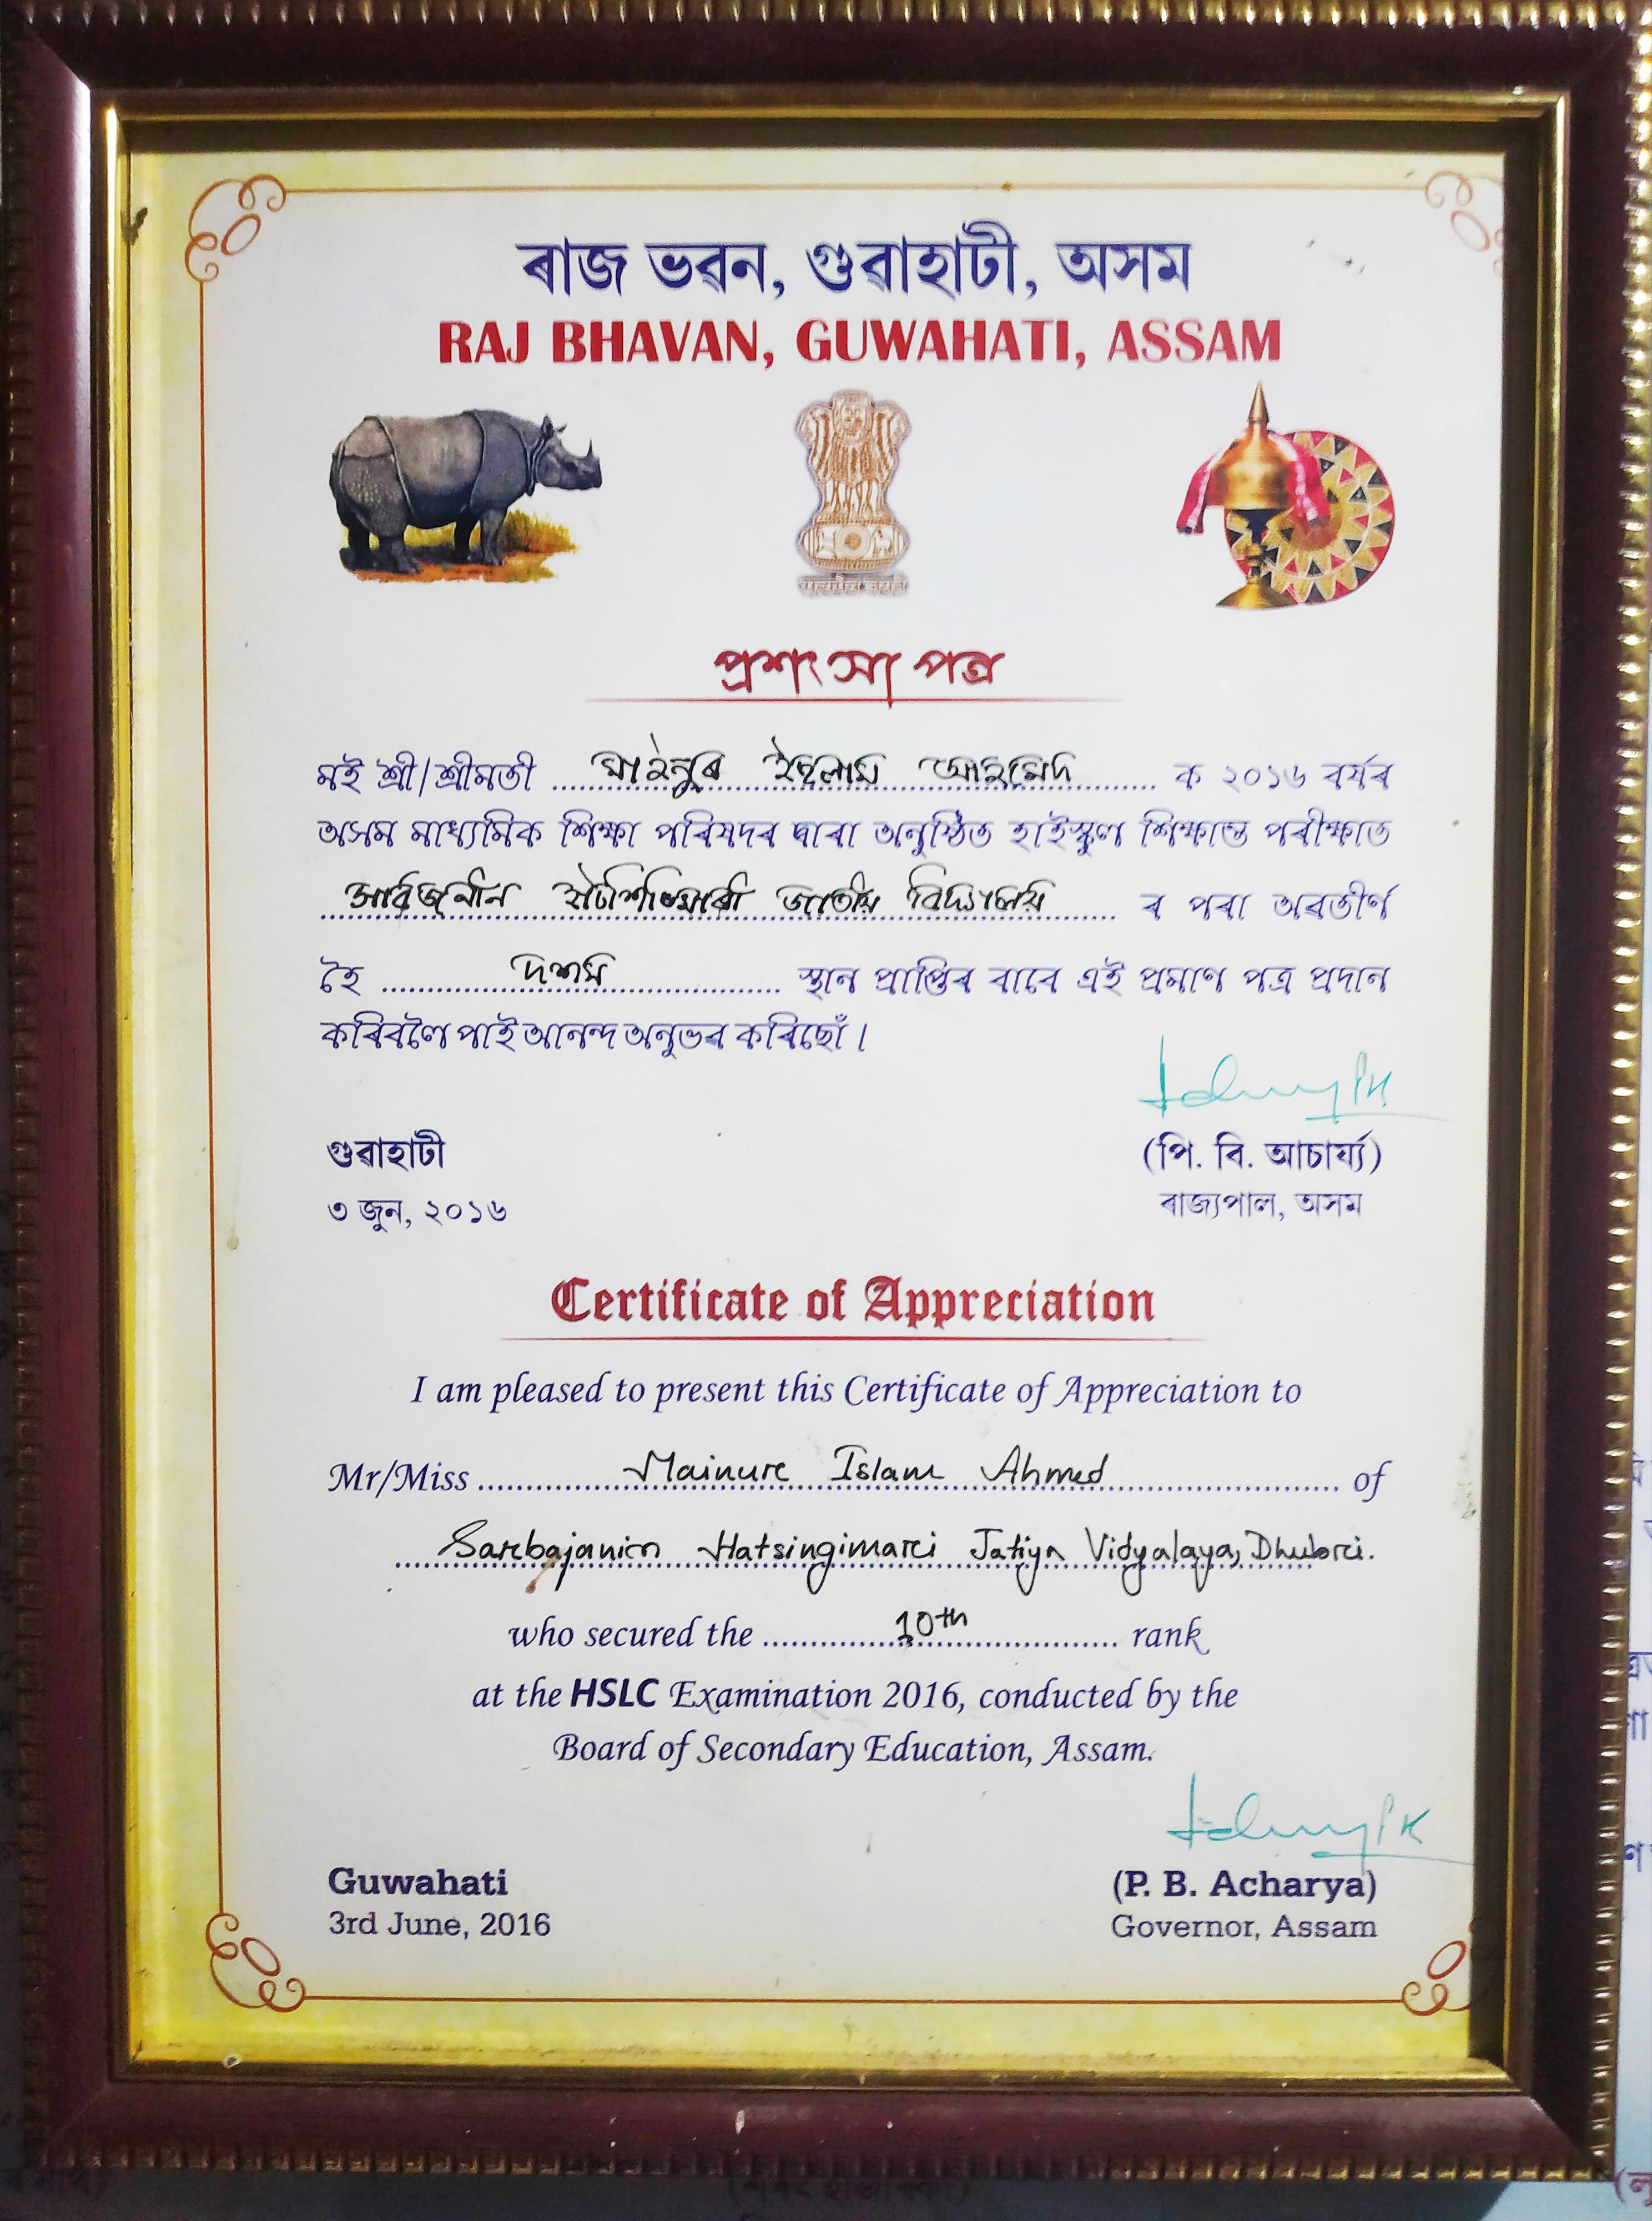 ৰাজ ভৱন, গুৱাহাটী, অসম
RAJ BHAVAN, GUWAHATI, ASSAM
सत्यमेव जयते
প্ৰশংসা পত্ৰ
মই শ্ৰী/শ্ৰীমতী মাইনুৰ ইছলাম আহমেদ ক ২০১৬ বৰ্ষৰ
অসম মাধ্যমিক শিক্ষা পৰিষদৰ দ্বাৰা অনুষ্ঠিত হাইস্কুল শিক্ষান্ত পৰীক্ষাত
সাৰ্বজনীন হাটশিঙিমাৰী জাতীয় বিদ্যালয় ৰ পৰা অৱতীৰ্ণ
হৈ দশম স্থান প্ৰাপ্তিৰ বাবে এই প্ৰমাণ পত্ৰ প্ৰদান
কৰিবলৈ পাই আনন্দ অনুভৱ কৰিছোঁ।
গুৱাহাটী
(পি. বি. আচাৰ্য্য)
৩ জুন, ২০১৬
ৰাজ্যপাল, অসম
Certificate of Appreciation
I am pleased to present this Certificate of Appreciation to
Mr/Miss Mainure Islam Ahmed of
Sarbajanin Hatsingimari Jatiya Vidyalaya, Dhubri.
who secured the 10th rank
at the HSLC Examination 2016, conducted by the
Board of Secondary Education, Assam.
Guwahati
(P. B. Acharya)
3rd June, 2016
Governor, Assam